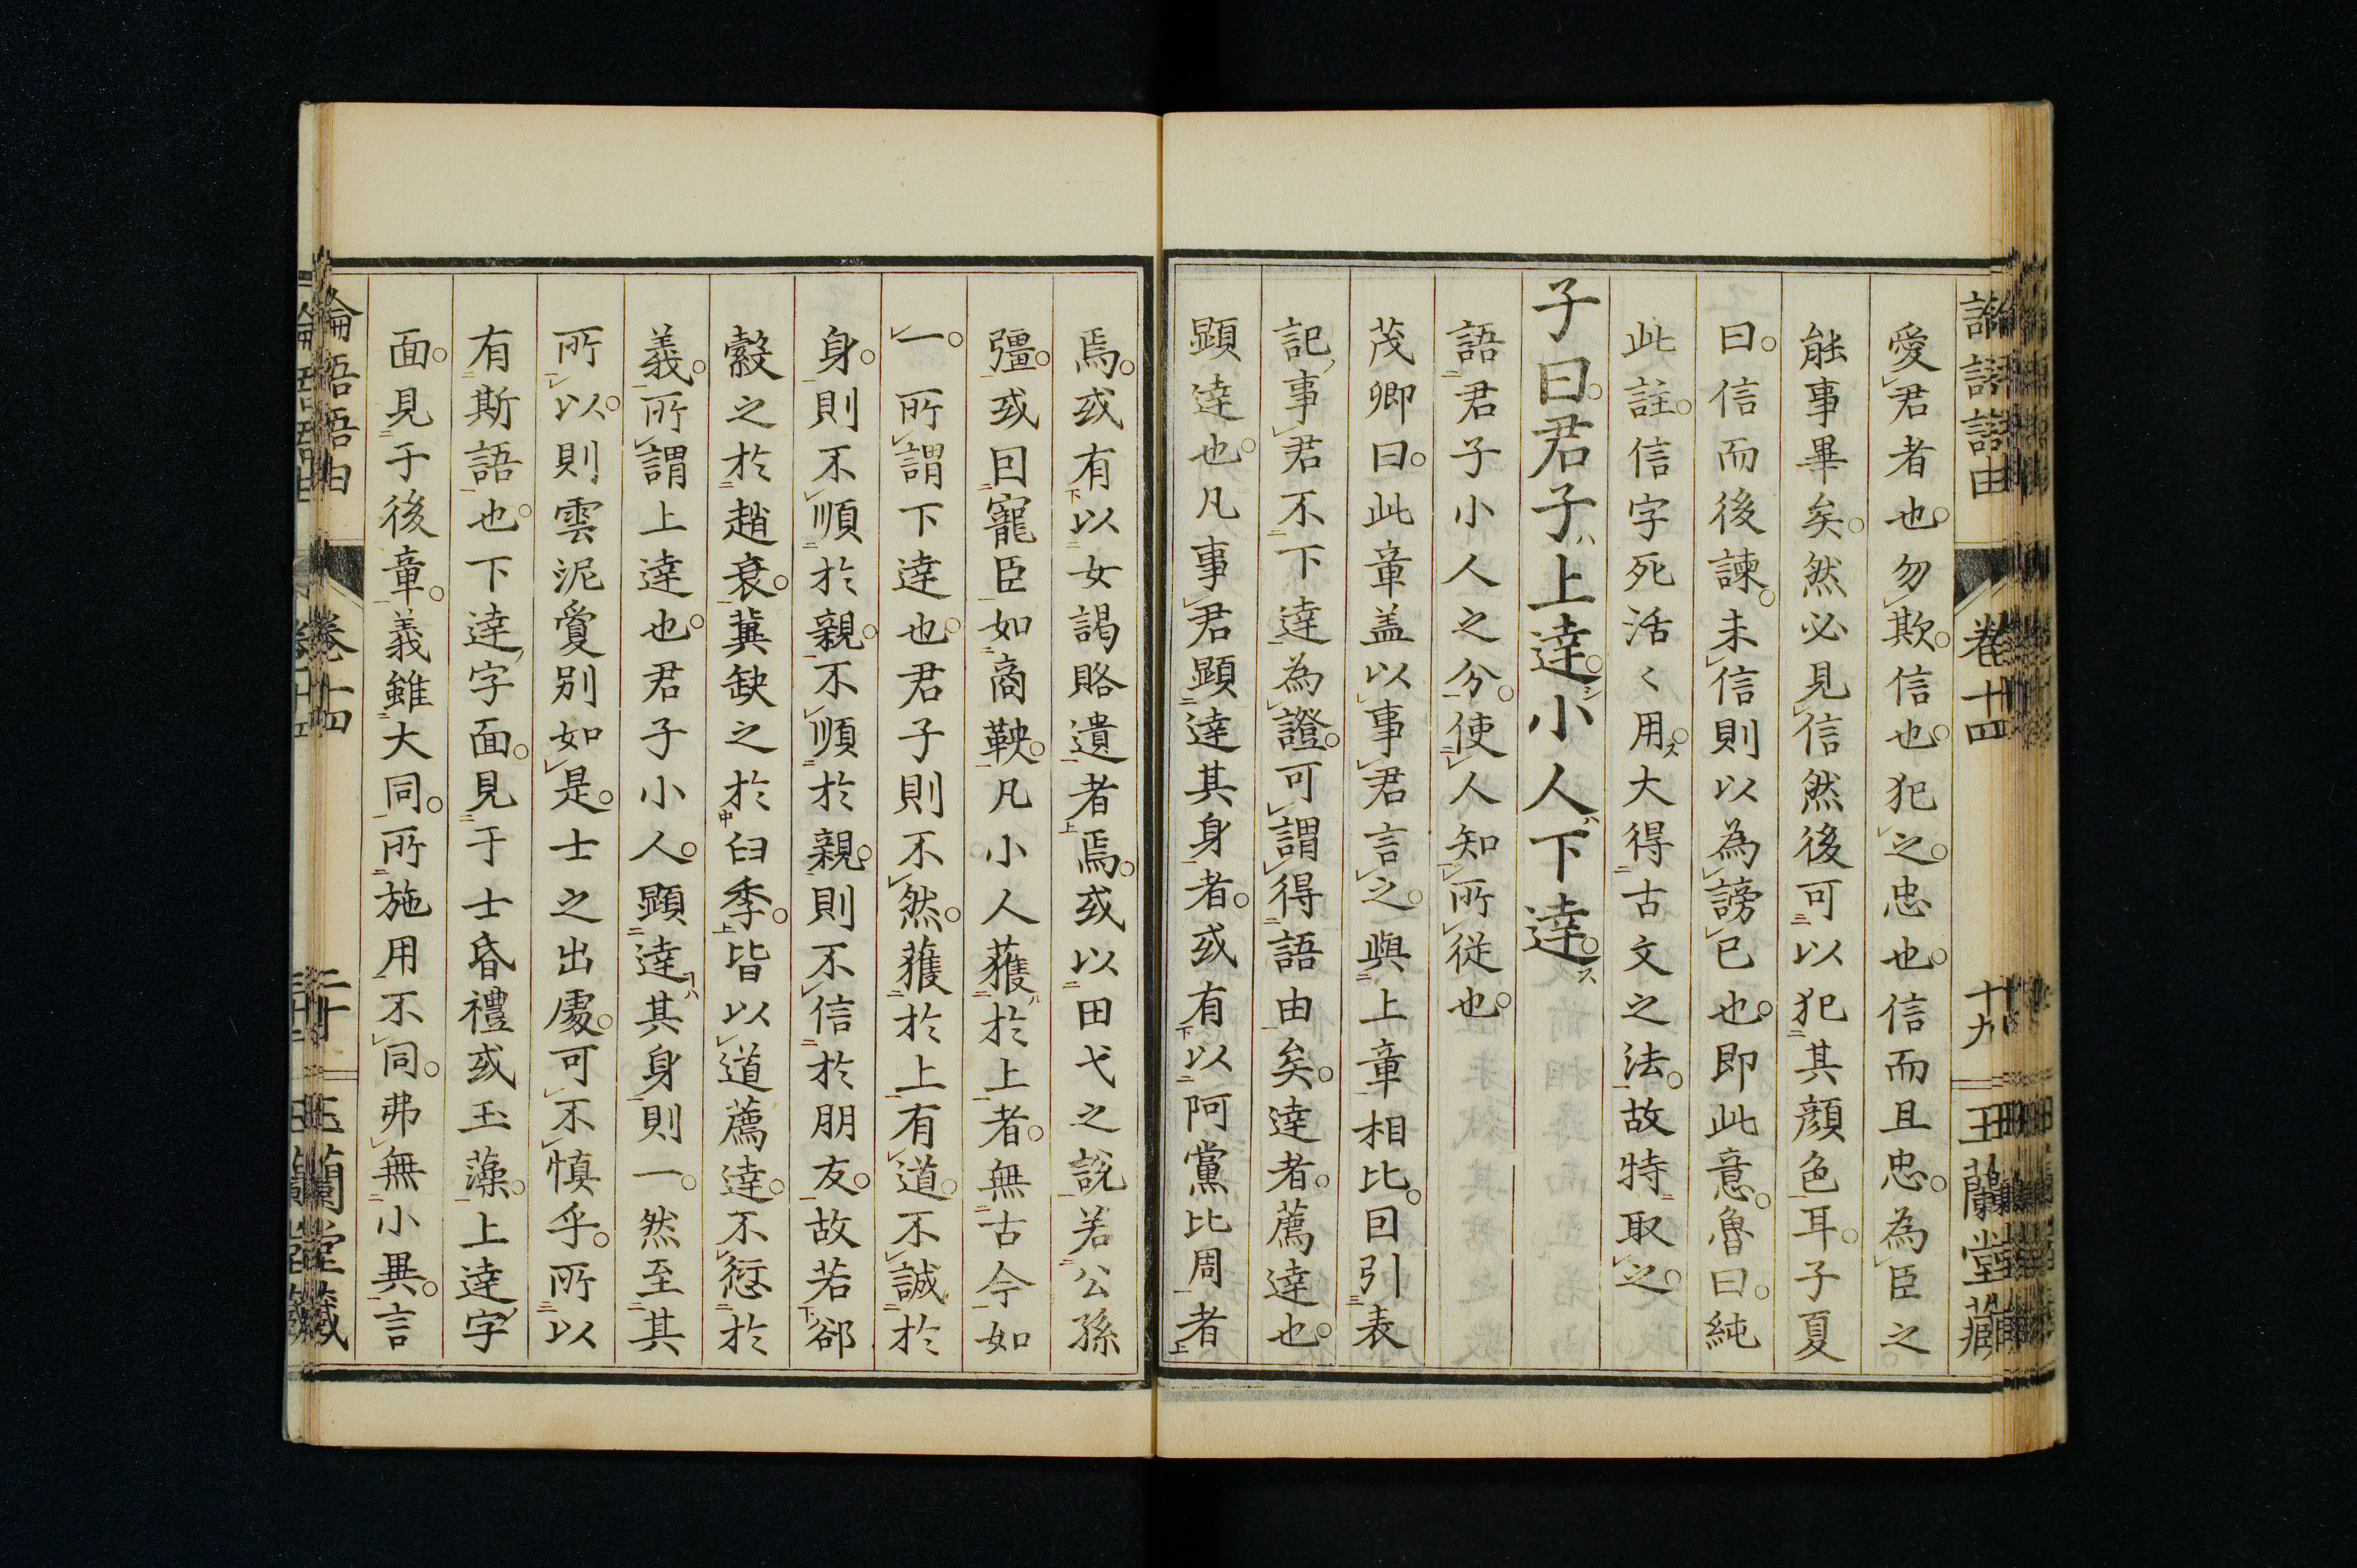 論語語由 卷十四 十九 玉蘭堂藏
愛君者也。勿欺。信也。犯之。忠也。信而且忠。為臣之
能事畢矣。然必見信然後可以犯其顏色耳。子夏
曰。信而後諫。未信則以為謗已也。即此意。魯曰。純
此註。信字死活〻用。大得古文之法。故特取之。
子曰。君子上達。小人下達。
語君子小人之分。使人知所從也。
茂卿曰。此章盖以事君言之。與上章相比。囙引表
記事君不下達為證。可謂得語由矣。達者。薦達也。
顕達也。凡事君顕達其身者。或有以阿黨比周者
焉。或有以女謁賂遺者焉。或以田弋之説若公孫
彊。或囙寵臣如商鞅。凡小人獲於上者。無古今如
一。所謂下達也。君子則不然。獲於上有道。不誠於
身。則不順於親。不順於親。則不信於朋友。故若郤
縠之於趙衰。冀缺之於臼季。皆以道薦達。不愆於
義。所謂上達也。君子小人。顕達其身則一。然至其
所以。則雲泥夐別如是。士之出處。可不慎乎。所以
有斯語也。下達字面。見于士昏禮或玉藻。上達字
面。見于後章。義雖大同。所施用不同。弗無小異。言
論語語由 卷十四 二十 玉蘭堂藏